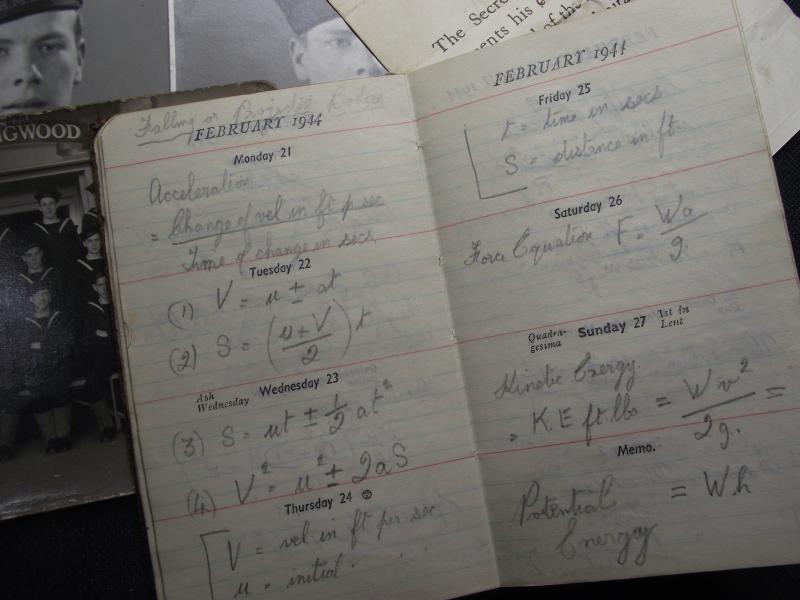 NGWOOD
The Secre
ents his
of the
Falling or Projected Bodies
FEBRUARY 1944
Monday 21
Acceleration
= Change of vel in ft p sec
Time of change in secs
Tuesday 22
(1) V = u ± at
(2) S = (u ± V / 2) t
Ash Wednesday
Wednesday 23
(3) S = ut ± 1/2 at²
(4) V² = u² ± 2aS
Thursday 24
V = vel in ft per sec
u = initial " " "
FEBRUARY 1944
Friday 25
t = time in secs
S = distance in ft
Saturday 26
Force Equation F = Wa / g
Quadra-
gesima
Sunday 27
1st in
Lent
Kinetic Energy
= K.E ft.lbs = Wv² / 2g. =
Memo.
Potential = Wh
Energy